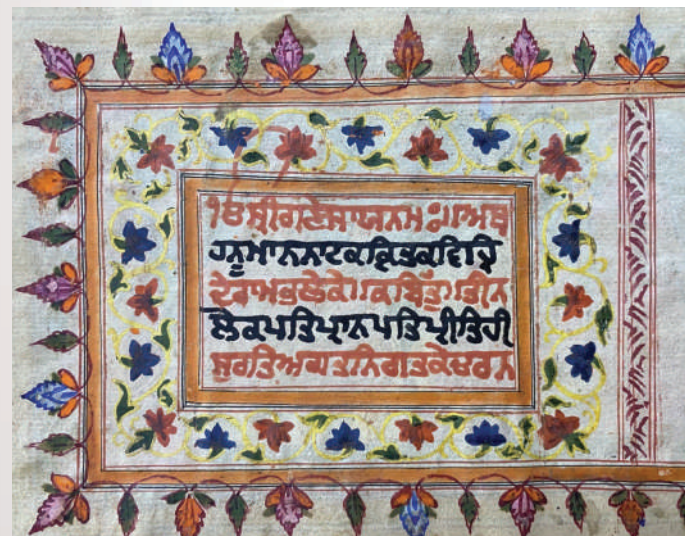 ੴ ਸ੍ਰੀਗਣੇਸਾਯਨਮਃ॥ਅਥ
ਹਨੂਮਾਨਨਾਟਕਕ੍ਰਿਤਕਵਿਹ੍ਰਿ
ਦੇਰਾਮਭਲੇਕੇ॥ਕਬਿੱਤ॥ਤੀਨ
ਲੋਕਪਤਿਪ੍ਰਾਨਪਤਿਪ੍ਰੀਤਿਹੀ
ਮੇਰਤਿਅਗਤਨਿਗਤਕੇਚਰਨ